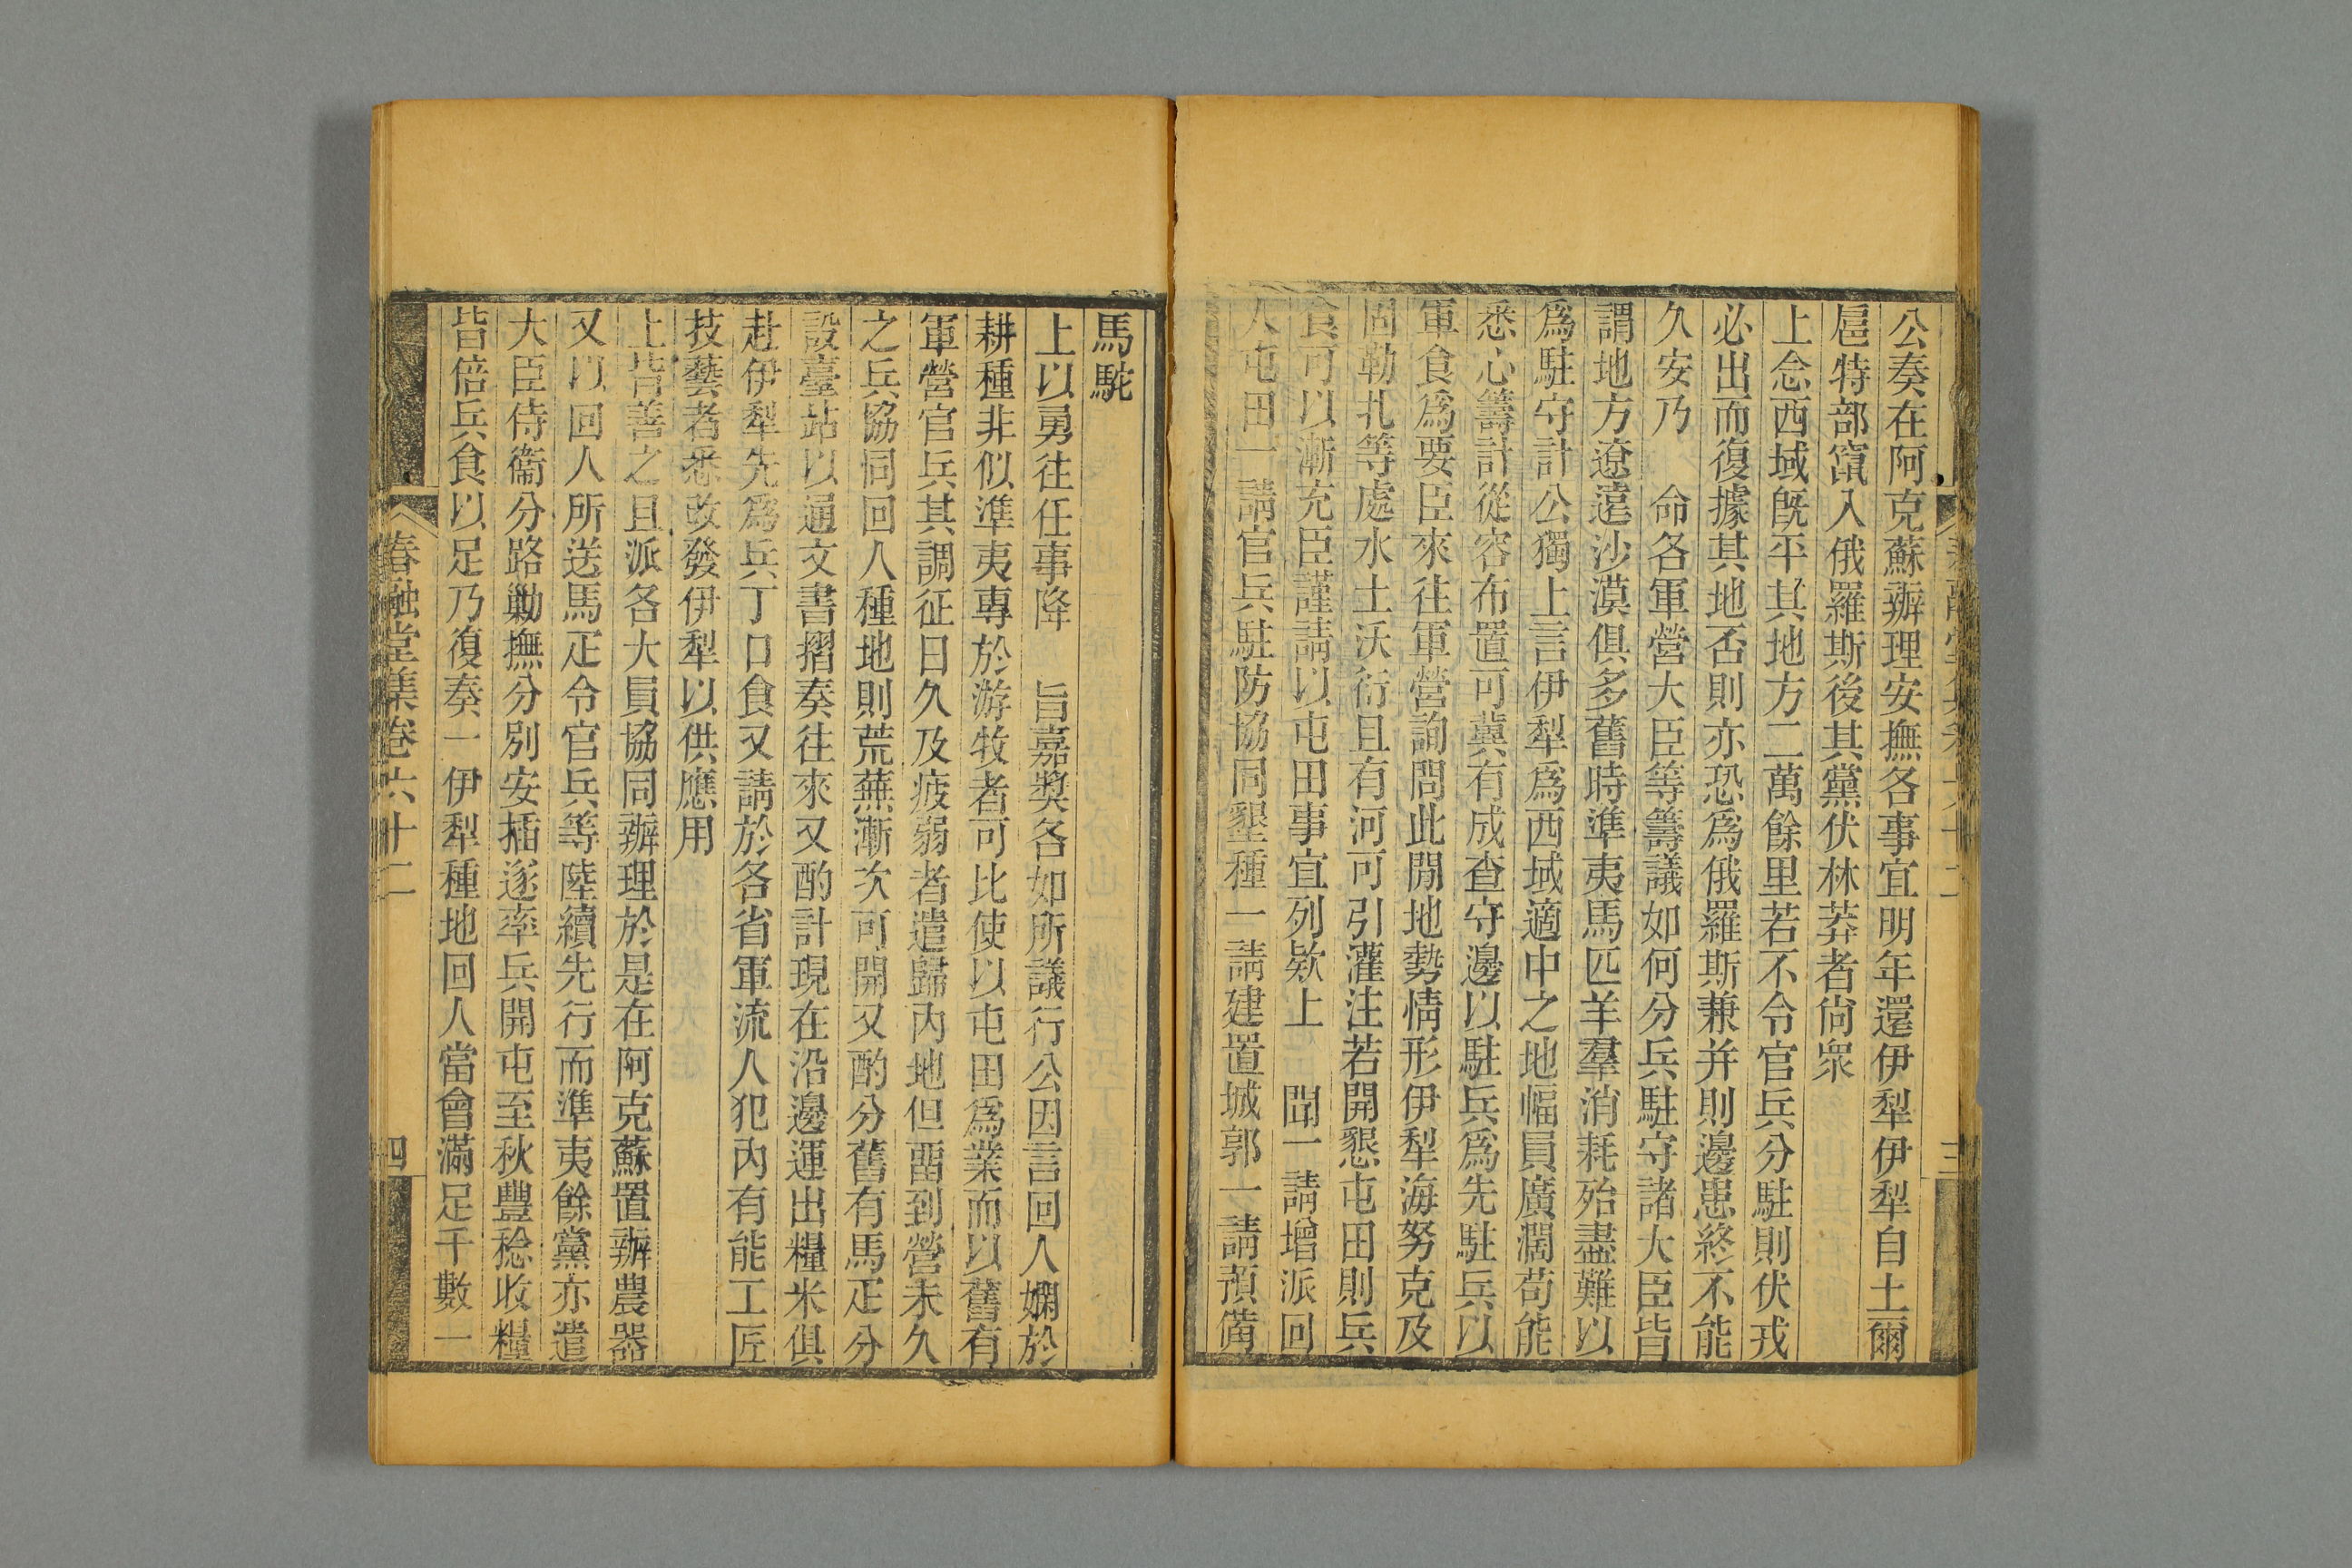 公奏在阿克蘇辦理安撫各事宜明年還伊犁伊犁自土爾
扈特部竄入俄羅斯後其黨伏林莽者尙眾
上念西域旣平其地方二萬餘里若不令官兵分駐則伏戎
必出而復據其地否則亦恐爲俄羅斯兼并則邊患終不能
久安乃　命各軍營大臣等籌議如何分兵駐守諸大臣皆
謂地方遼遠沙漠俱多舊時準夷馬匹羊羣消耗殆盡難以
爲駐守計公獨上言伊犁爲西域適中之地幅員廣濶苟能
悉心籌計從容布置可冀有成查守邊以駐兵爲先駐兵以
軍食爲要臣來往軍營詢問此閒地勢情形伊犁海努克及
固勒扎等處水土沃衍且有河可引灌注若開懇屯田則兵
食可以漸充臣謹請以屯田事宜列欵上　聞一請增派回
人屯田一請官兵駐防協同墾種一請建置城郭一請預備
馬駝
上以勇往任事降　旨嘉奬各如所議行公因言回人嫻於
耕種非似準夷專於游牧者可比使以屯田爲業而以舊有
軍營官兵其調征日久及疲弱者遣歸內地但畱到營未久
之兵協同回人種地則荒蕪漸次可開又酌分舊有馬疋分
設臺站以通文書摺奏往來又酌計現在沿邊運出糧米俱
赴伊犁先爲兵丁口食又請於各省軍流人犯內有能工匠
技藝者悉改發伊犁以供應用
上皆善之且派各大員協同辦理於是在阿克蘇置辦農器
又以回人所送馬疋令官兵等陸續先行而準夷餘黨亦遣
大臣侍衞分路勦撫分別安插遂率兵開屯至秋豐稔收糧
皆倍兵食以足乃復奏一伊犁種地回人當會滿足千數一
春融堂集卷六十二
四